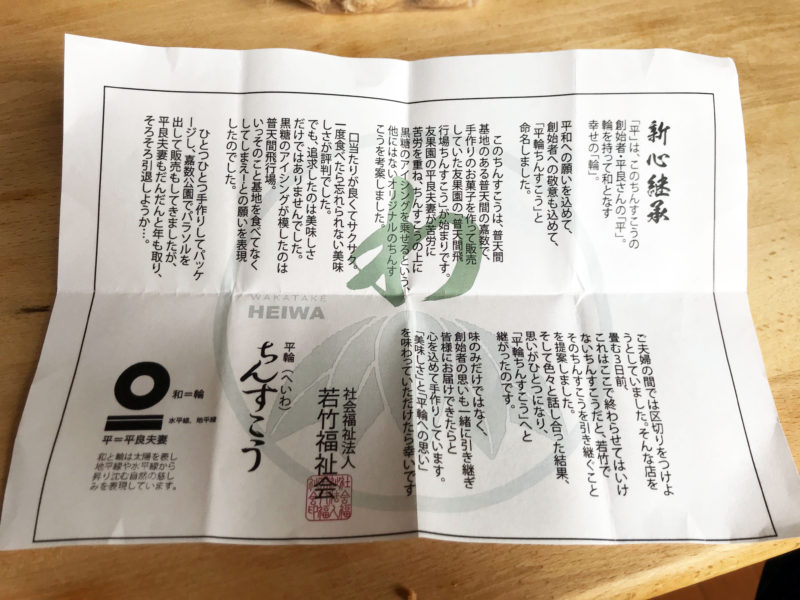 新心継承
「平」は、このちんすこうの
創始者・平良さんの「平」。
輪を持って和となす
幸せの「輪」。
平和への願いを込めて、
創始者への敬意も込めて、
「平輪ちんすこう」と
命名しました。
このちんすこうは、普天間
基地のある普天間の嘉数で、
手作りのお菓子を作って販売
していた友果園の「普天間飛
行場ちんすこう」が始まりです。
友果園の平良夫妻が苦労に
苦労を重ね、ちんすこうの上に
黒糖のアイシングを乗せるという、
他にはないオリジナルのちんす
こうを考案しました。
口当たりが良くてサクサク。
一度食べたら忘れられない美味
しさが評判でした。
でも、追求したのは美味しさ
だけではありませんでした。
黒糖のアイシングが模したのは
普天間飛行場。
いっそのこと基地を食べてなく
してしまえーとの願いを表現
したのでした。
ひとつひとつ手作りしてパッケ
ージし、嘉数公園でパラソルを
出して販売もしてきましたが、
平良夫妻もだんだんと年も取り、
そろそろ引退しようか…。
ご夫婦の間では区切りをつけよ
うとしていました。そんな店を
畳む3日前、
これはここで終わらせてはいけ
ないちんすこうだと、若竹で
そのちんすこうを引き継ぐこと
を提案しました。
そして色々と話し合った結果、
思いがひとつになり、
「平輪ちんすこう」へと
継がったのです。
味のみだけではなく、
創始者の思いも一緒に引き継ぎ
皆様にお届けできたらと
心を込めて手作りしています。
「美味しさ」と「平輪への思い」
を味わっていただけたら幸いです
社会福祉法人
若竹福祉会
平輪(へいわ)
ちんすこう
和
WAKATAKE
HEIWA
和=輪
水平線、地平線
平=平良夫妻
和と輪は太陽を表し
地平線や水平線から
昇り沈む自然の慈し
みを表現しています。